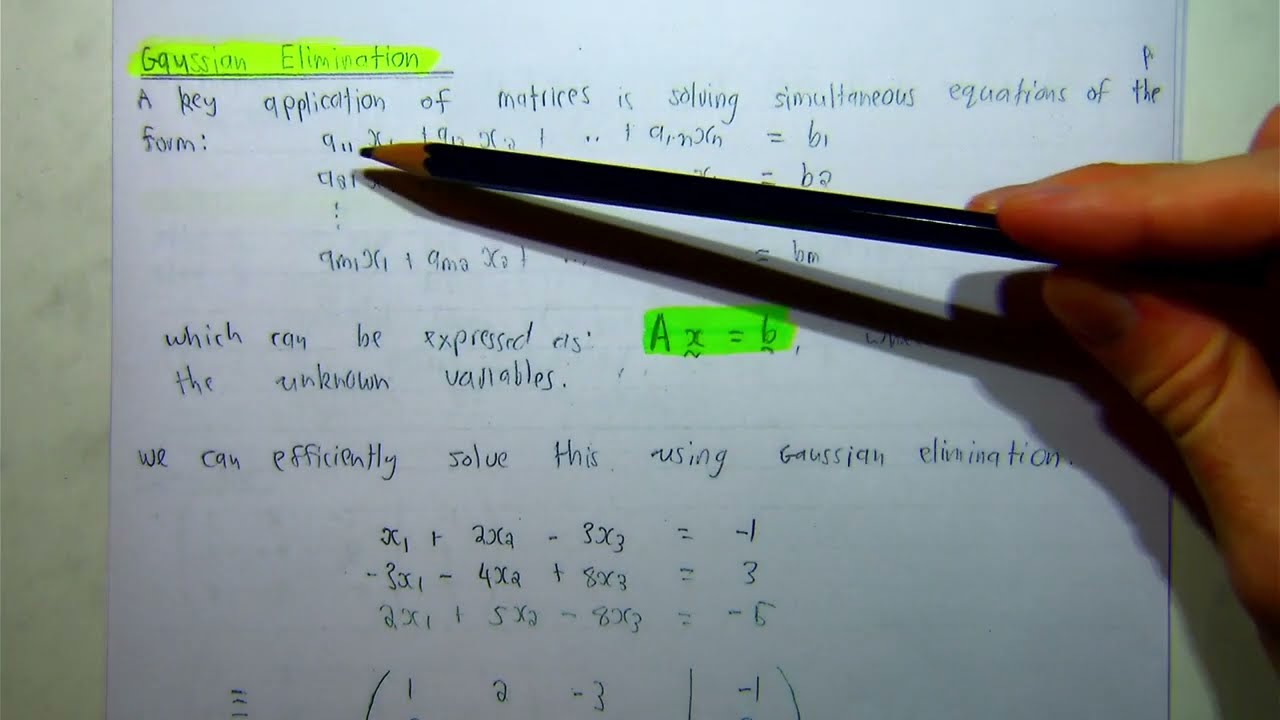 Gaussian Elimination
A key application of matrices is solving simultaneous equations of the
form: a₁₁x₁ + a₁₂x₂ + .. + a₁,ₙxₙ = b₁
a₂₁ = b₂
⋮
aₘ₁x₁ + aₘ₂x₂ + ... = bₘ
which can be expressed as: A x = b,
the unknown variables.
we can efficiently solve this using Gaussian elimination.
x₁ + 2x₂ - 3x₃ = -1
-3x₁ - 4x₂ + 8x₃ = 3
2x₁ + 5x₂ - 8x₃ = -5
≡ ( 1 2 -3 | -1 )